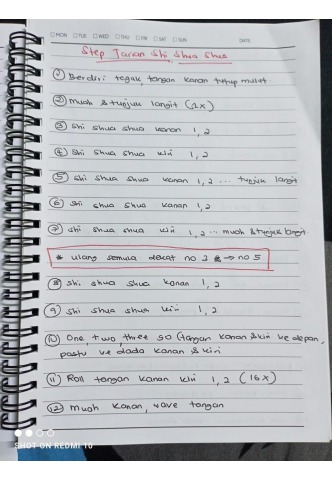 MON TUE WED THU FRI SAT SUN DATE
Step Tarian Shi Shua Shua
1 Berdiri tegak, tangan kanan tutup mulut
2 muah & tunjuk langit (2x)
3 shi shua shua kanan 1, 2
4 shi shua shua kiri 1, 2
5 shi shua shua kanan 1, 2 ... tunjuk langit
6 shi shua shua kanan 1, 2
7 shi shua shua kiri 1, 2 ... muah & tunjuk langit
* ulang semula dekat no 3 → no 5
8 shi shua shua kanan 1, 2
9 shi shua shua kiri 1, 2
10 One, two, three go (tangan kanan & kiri ke depan,
pastu ke dada kanan & kiri
11 Roll tangan kanan kiri 1, 2 (16x)
12 muah kanan, wave tangan
SHOT ON REDMI 10